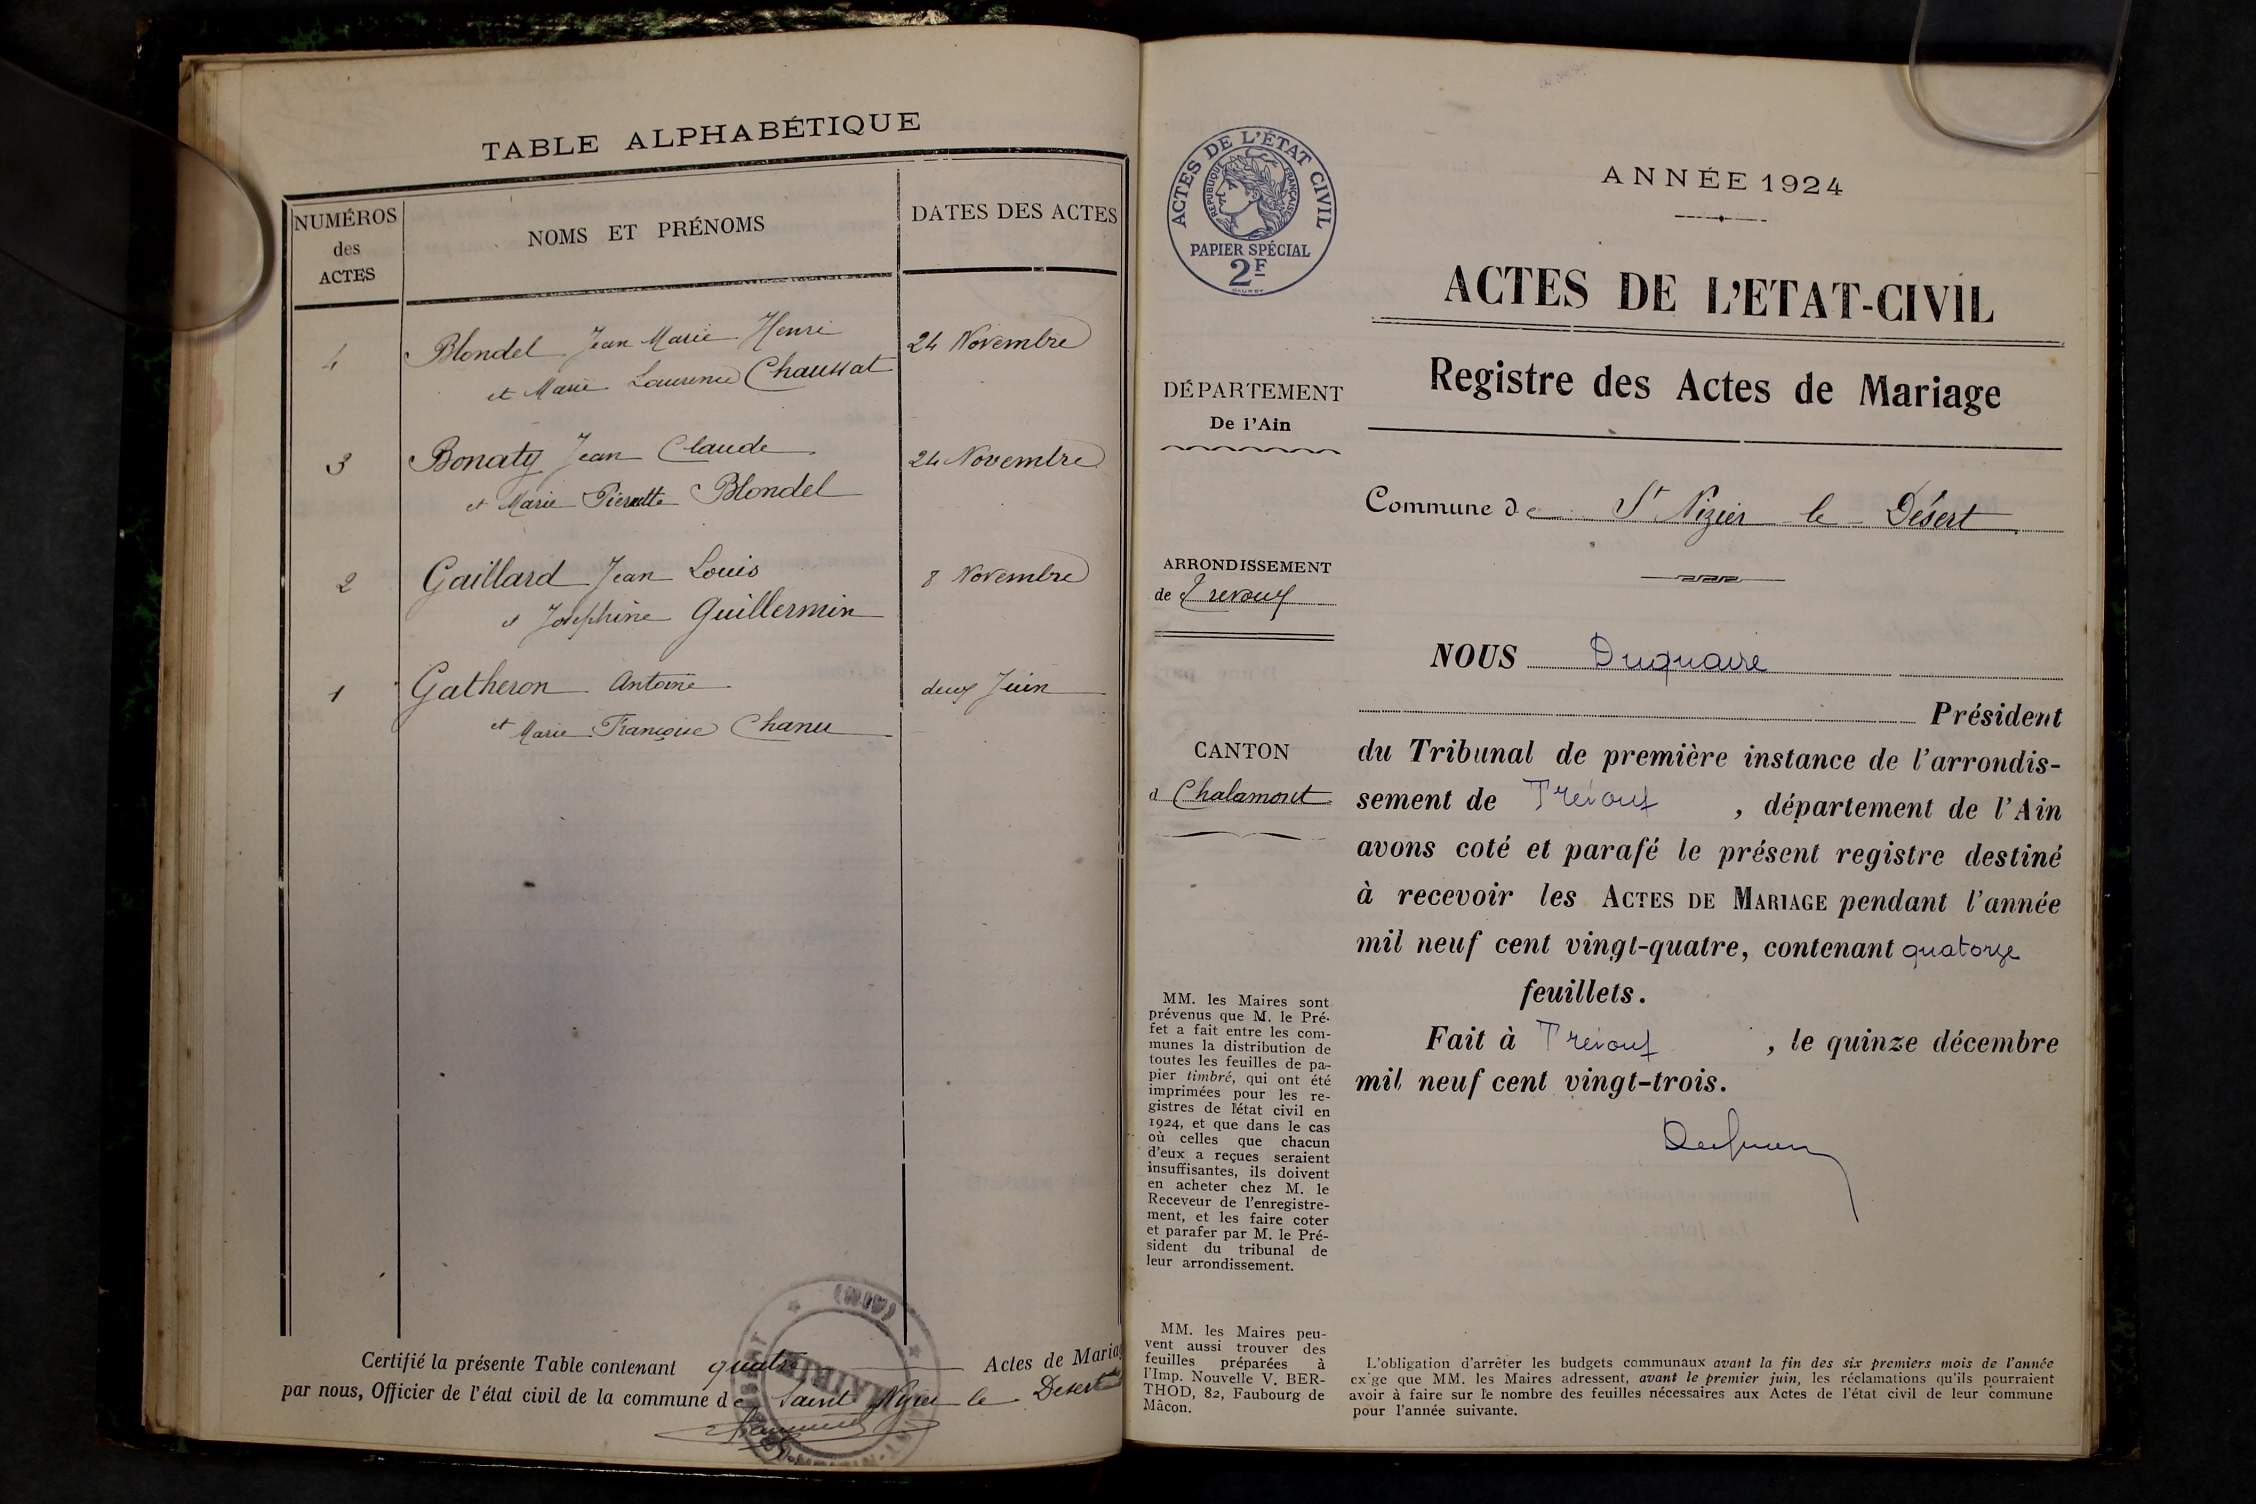 TABLE ALPHABÉTIQUE
NUMÉROS
des
ACTES
NOMS ET PRÉNOMS
DATES DES ACTES
4 Blondel Jean Marie Henri 24 Novembre
et Marie Laurence Chaussat
3 Bonaty Jean Claude 24 Novembre
et Marie Pierrette Blondel
2 Gaillard Jean Louis 8 Novembre
et Joséphine Guillermin
1 Gatheron Antoine deux Juin
et Marie Françoise Chanu
Certifié la présente Table contenant quatre Actes de Mariag
par nous, Officier de l'état civil de la commune de Sainte Nizier le Desert
(AIN)
MAIRIE
ACTES DE L'ÉTAT CIVIL
RÉPUBLIQUE FRANÇAISE
PAPIER SPÉCIAL
2F
DÉPARTEMENT
De l'Ain
ARRONDISSEMENT
de Trevoux
CANTON
d Chalamont
MM. les Maires sont
prévenus que M. le Pré-
fet a fait entre les com-
munes la distribution de
toutes les feuilles de pa-
pier timbré, qui ont été
imprimées pour les re-
gistres de l'état civil en
1924, et que dans le cas
où celles que chacun
d'eux a reçues seraient
insuffisantes, ils doivent
en acheter chez M. le
Receveur de l'enregistre-
ment, et les faire coter
et parafer par M. le Pré-
sident du tribunal de
leur arrondissement.
MM. les Maires peu-
vent aussi trouver des
feuilles préparées à
l'Imp. Nouvelle V. BER-
THOD, 82, Faubourg de
Mâcon.
ANNÉE 1924
ACTES DE L'ETAT-CIVIL
Registre des Actes de Mariage
Commune de St Nizier le Désert
NOUS Duquaire
Président
du Tribunal de première instance de l'arrondis-
sement de Trévoux , département de l'Ain
avons coté et parafé le présent registre destiné
à recevoir les ACTES DE MARIAGE pendant l'année
mil neuf cent vingt-quatre, contenant quatorze
feuillets.
Fait à Trévoux , le quinze décembre
mil neuf cent vingt-trois.
L'obligation d'arrêter les budgets communaux avant la fin des six premiers mois de l'année
exige que MM. les Maires adressent, avant le premier juin, les réclamations qu'ils pourraient
avoir à faire sur le nombre des feuilles nécessaires aux Actes de l'état civil de leur commune
pour l'année suivante.